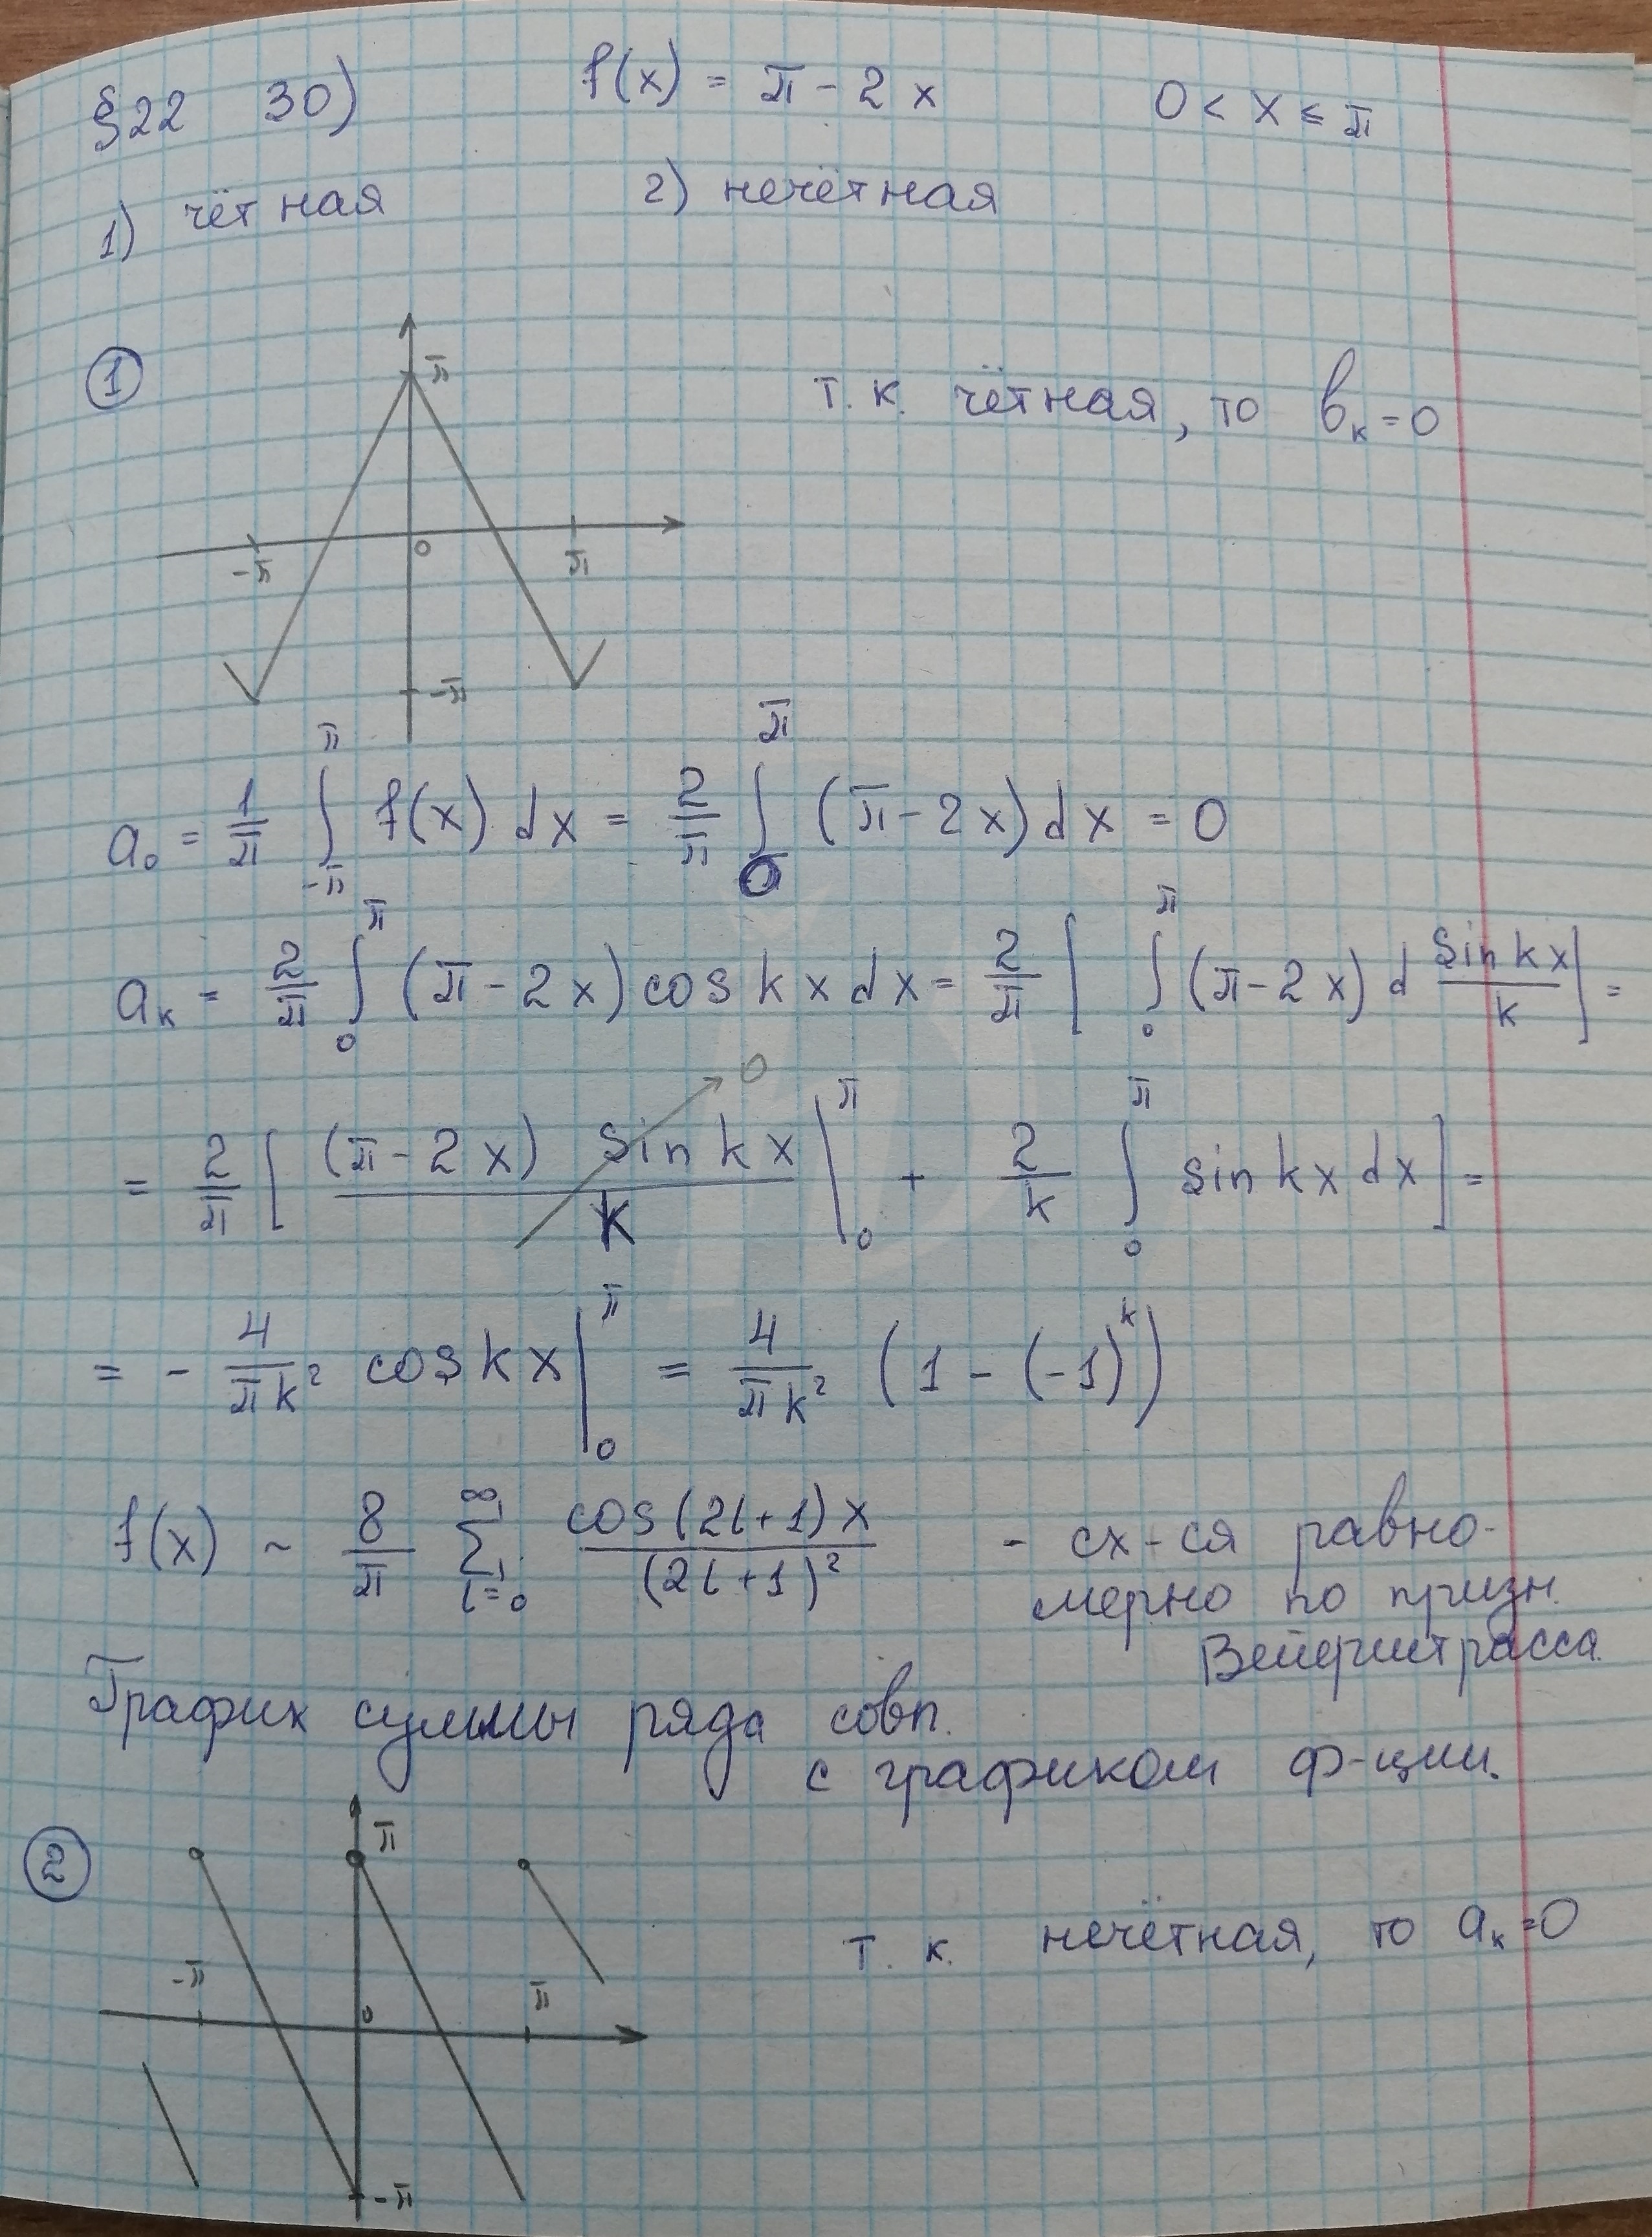 §22 30) f(x) = π - 2x 0 < x ≤ π
1) чётная 2) нечётная
① π т.к. чётная, то b_k = 0
-π 0 π
-π
a_0 = \frac{1}{π} ∫_{-π}^{π} f(x) dx = \frac{2}{π} ∫_0^π (π - 2x) dx = 0
a_k = \frac{2}{π} ∫_0^π (π - 2x) cos kx dx = \frac{2}{π} [ ∫_0^π (π - 2x) d \frac{sin kx}{k} ] =
= \frac{2}{π} [ \frac{(π - 2x) sin kx}{k} |_0^π → 0 + \frac{2}{k} ∫_0^π sin kx dx ] =
= - \frac{4}{πk^2} cos kx |_0^π = \frac{4}{πk^2} (1 - (-1)^k)
f(x) ~ \frac{8}{π} ∑_{l=0}^{∞} \frac{cos(2l+1)x}{(2l+1)^2} - сх-ся равно-
мерно по призн.
Вейерштрасса.
График суммы ряда совп.
с графиком ф-ции.
② π т. к. нечётная, то a_k = 0
-π 0 π
-π